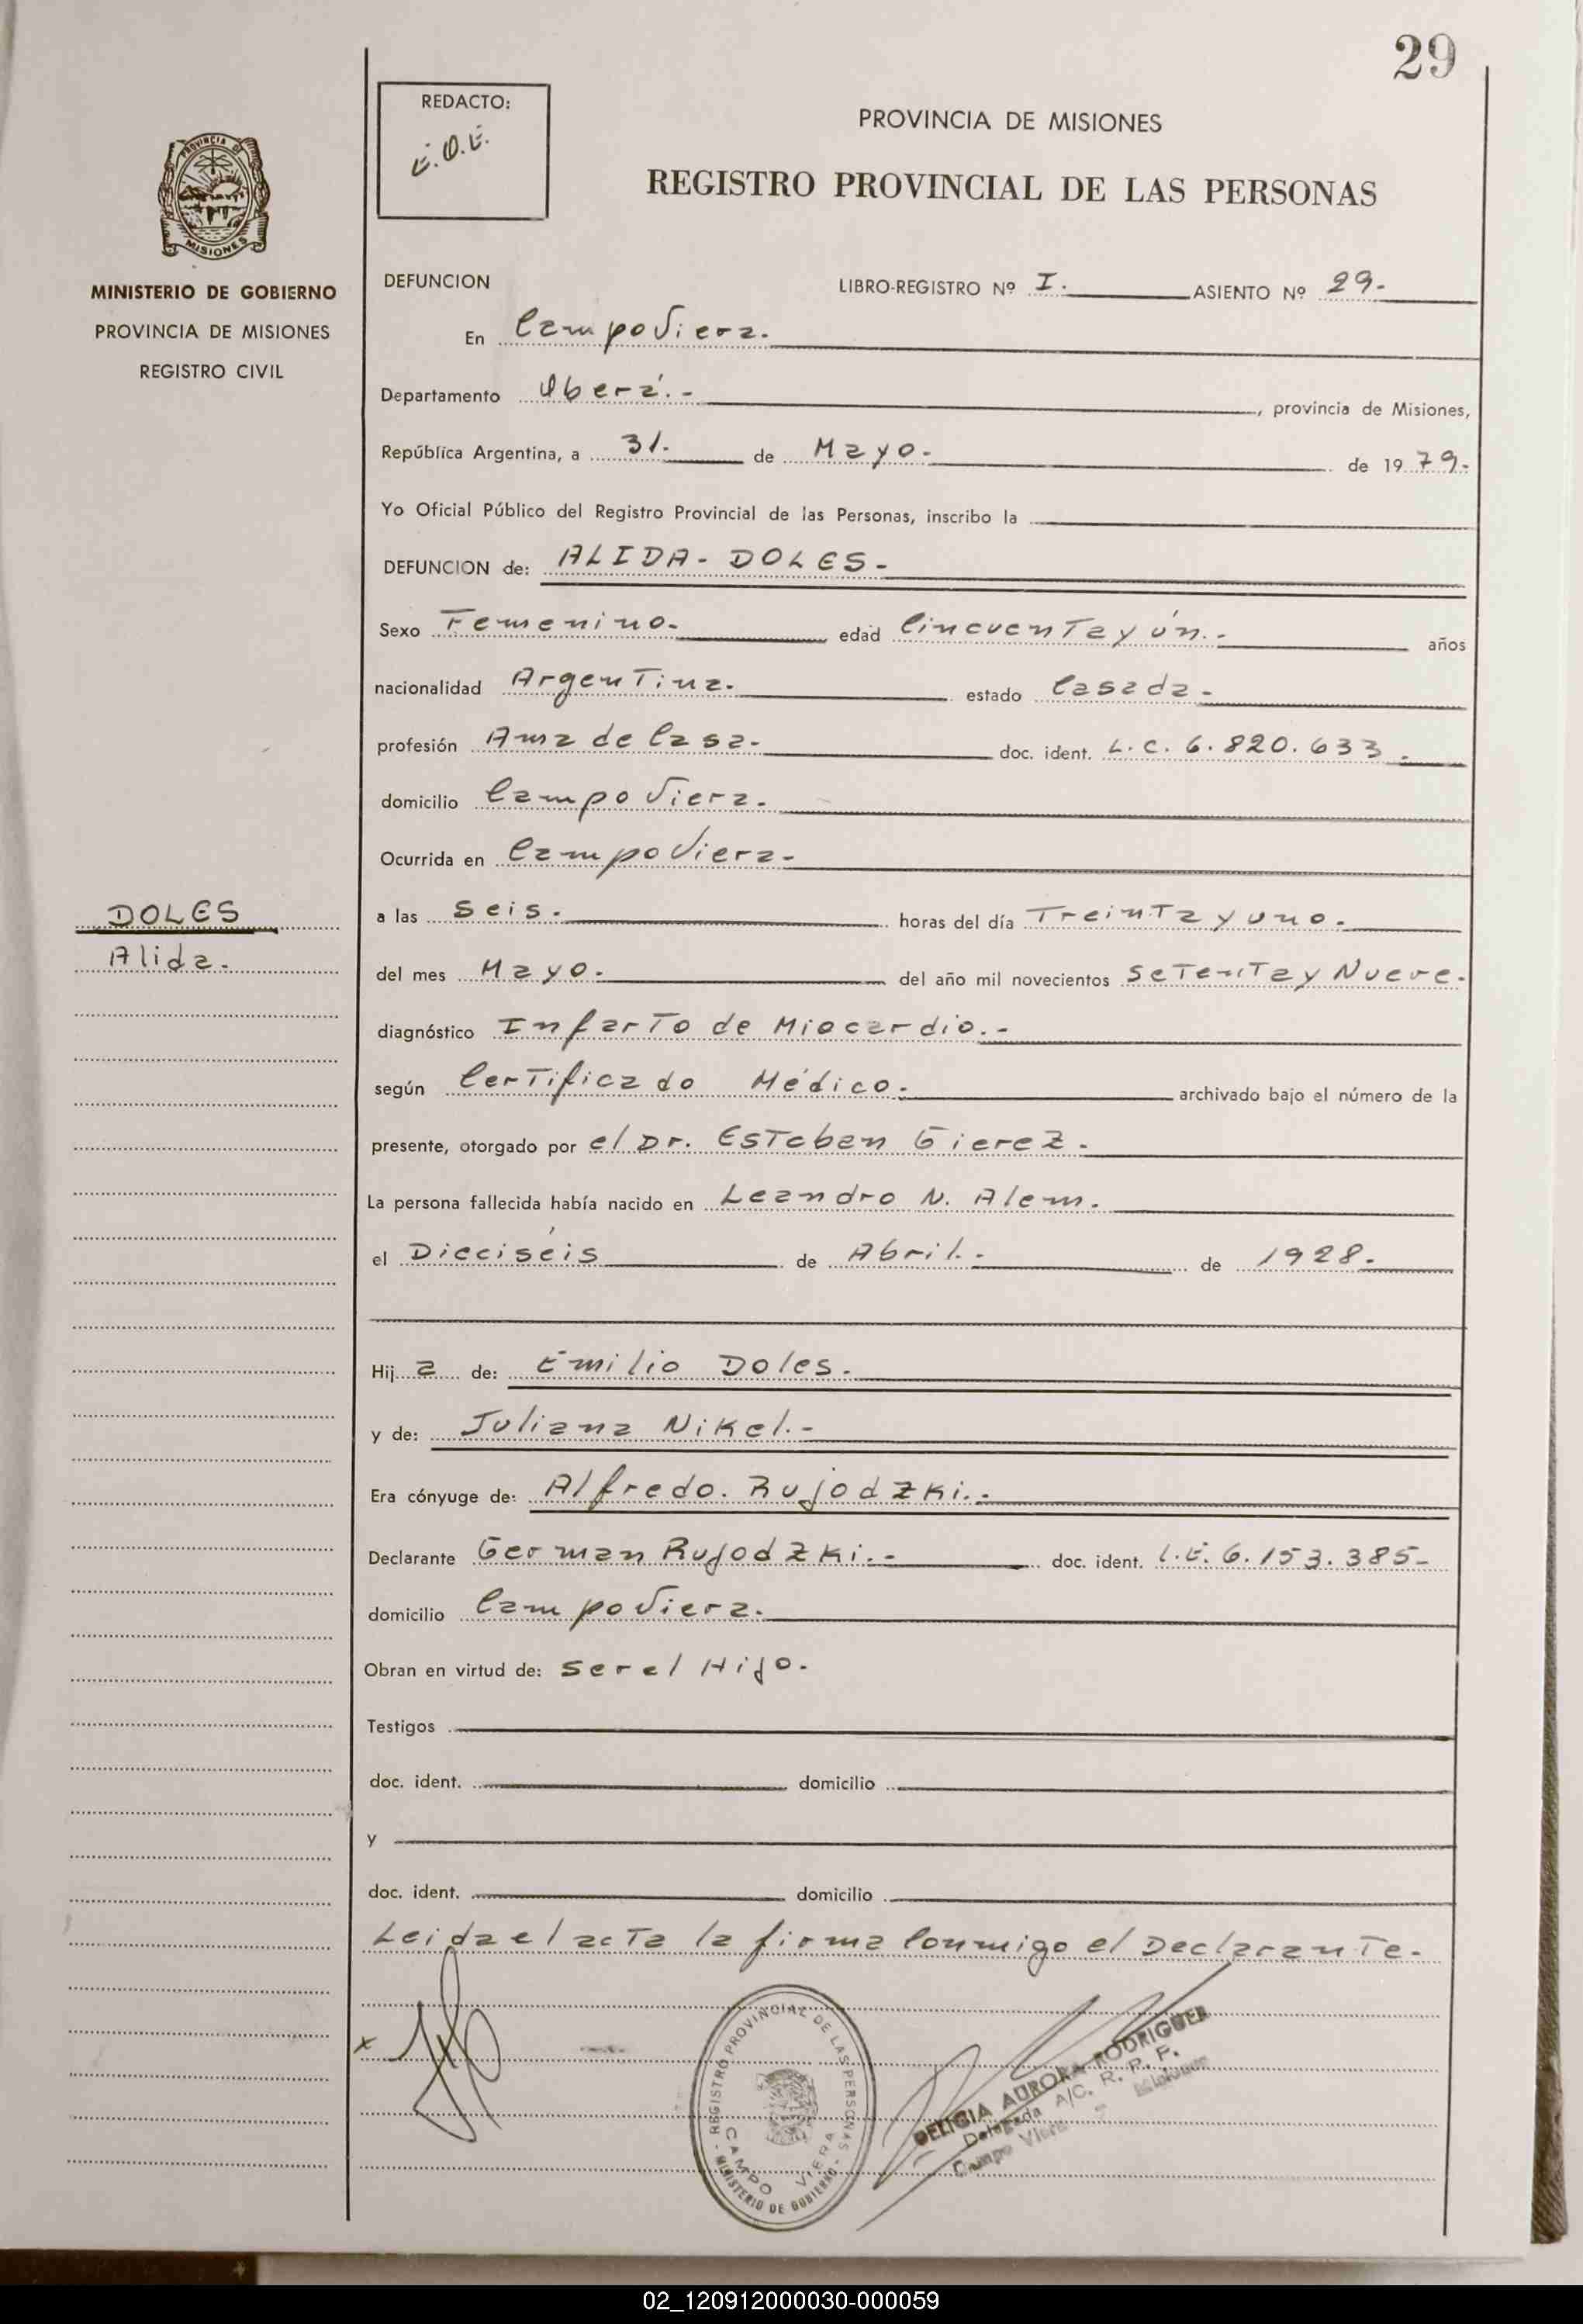 29
REDACTO:
E.O.E.
PROVINCIA DE MISIONES
REGISTRO PROVINCIAL DE LAS PERSONAS
PROVINCIA DE
MISIONES
MINISTERIO DE GOBIERNO
PROVINCIA DE MISIONES
REGISTRO CIVIL
DEFUNCION LIBRO-REGISTRO Nº I. ASIENTO Nº 29.-
En Campo Viera.
Departamento Oberá.- , provincia de Misiones,
República Argentina, a 31. de Mayo.- de 1979.-
Yo Oficial Público del Registro Provincial de las Personas, inscribo la
DEFUNCION de: ALIDA- DOLES-
Sexo Femenino. edad Cincuenta y ún.- años
nacionalidad Argentina. estado Casada-
profesión Ama de Casa- doc. ident. L.C. 6.820.633.-
domicilio Campo Viera.
Ocurrida en Campo Viera-
DOLES
Alida.
a las Seis. horas del día Treinta y uno.
del mes Mayo. del año mil novecientos Setenta y Nueve.
diagnóstico Infarto de Miocardio.-
según Certificado Médico. archivado bajo el número de la
presente, otorgado por el Dr. Esteban Gierez.
La persona fallecida había nacido en Leandro N. Alem.
el Dieciséis de Abril.- de 1928.-
Hija de: Emilio Doles.
y de: Juliana Nikel.-
Era cónyuge de: Alfredo. Rujodzki.-
Declarante German Rujodzki.- doc. ident. L.E. 6.153.385-
domicilio Campo Viera.
Obran en virtud de: ser el Hijo.
Testigos
doc. ident. domicilio
y
doc. ident. domicilio
Leida el acta la firma Conmigo el Declarante.
x
REGISTRO PROVINCIAL DE LAS PERSONAS
CAMPO VIERA
- MINISTERIO DE GOBIERNO -
DELICIA AURORA RODRIGUEZ
Delegada A/C. R. P. P.
Campo Viera - Misiones
02_120912000030-000059